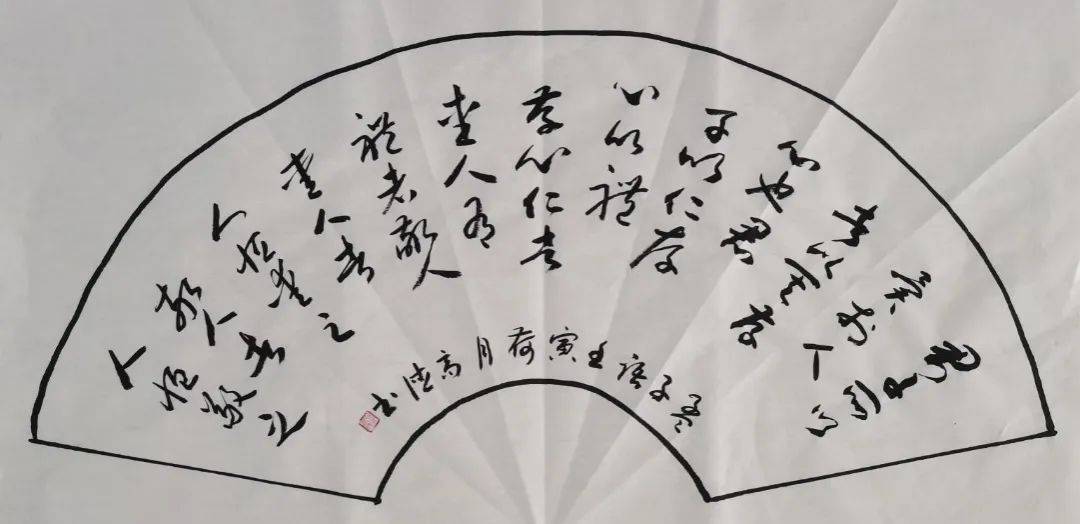 君子所以
异於人
者以其存
心也君
子以仁存
心以禮
存心仁者
愛人有
禮者敬人
愛人者
人恒愛之
敬人者
人恒敬之
孟子语壬寅荷月高书